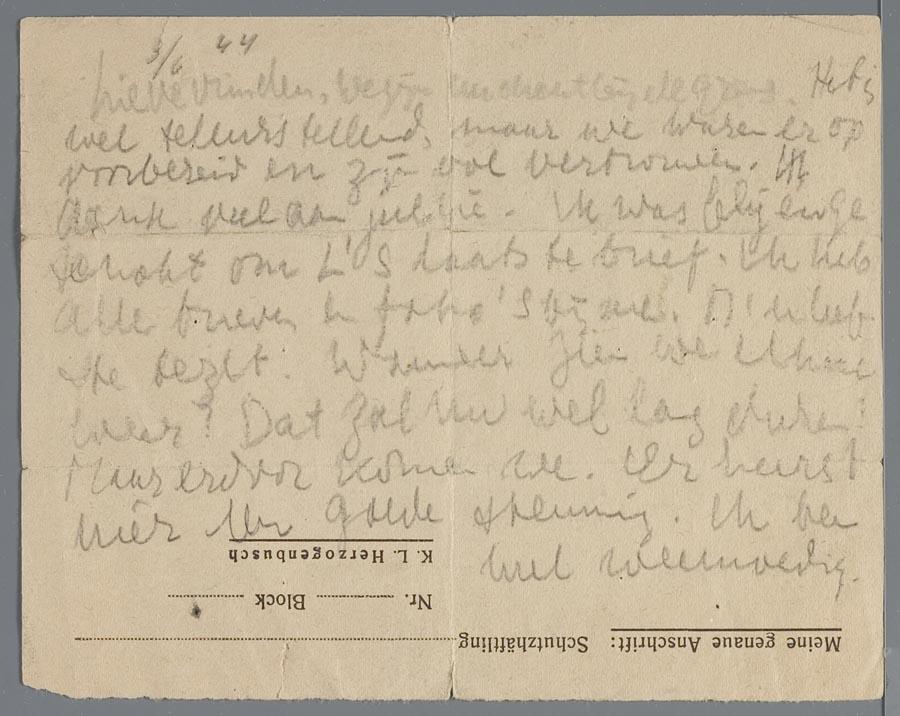 3/6 44
Lieve vrinden, we zijn nu dicht bij de grens. Het is
wel teleurstellend, maar we waren er op
voorbereid en zijn vol vertrouwen. Ik
dank veel aan jullie. Ik was
om L's laatste brief. Ik heb
alle brieven en foto's bij me. M'n lief-
ste bezit. Wanneer zien we elkaar
weer? Dat zal nu wel lang duren!
Maar erdoor komen we. Er heerst
hier een goede stemming. Ik ben
wel weemoedig.
K. L. Herzogenbusch
Nr. Block
Meine genaue Anschrift: Schutzhäftling